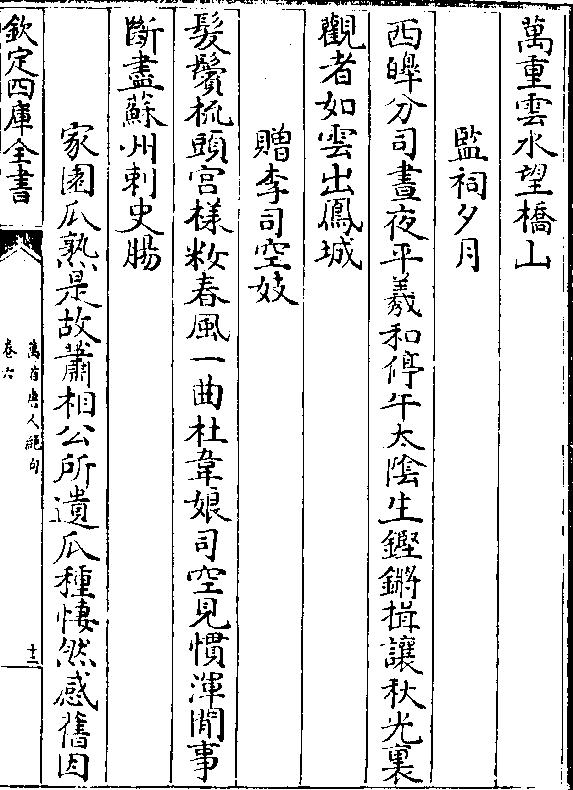 萬重雲水望橋山
監祠夕月
西皥分司晝夜平羲和停午太陰生鏗鏘揖讓秋光裏
觀者如雲出鳳城
贈李司空妓
髮鬢梳頭宫樣粧春風一曲杜韋娘司空見慣渾閒事
斷盡蘇州刺史腸
家園瓜熟是故蕭相公所遺瓜種悽然感舊因
欽定四庫全書
萬首唐人絕句
卷六
十二